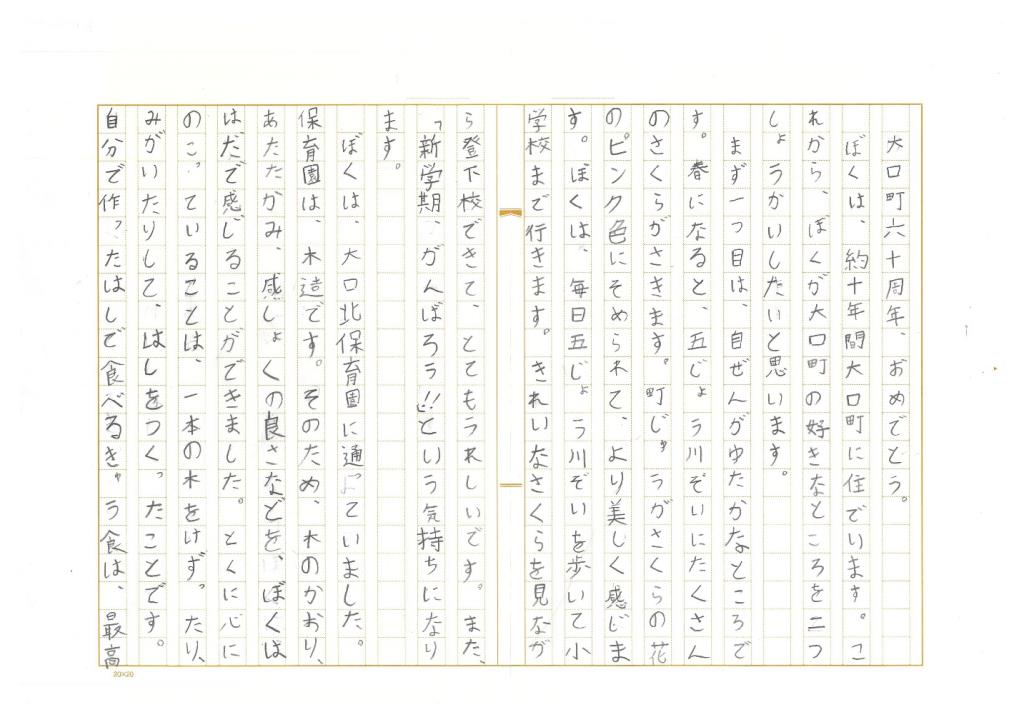 大口町六十周年、おめでとう。
ぼくは、約十年間大口町に住でいます。こ
れから、ぼくが大口町の好きなところを二つ
しょうかいしたいと思います。
まず一つ目は、自ぜんがゆたかなところで
す。春になると、五じょう川ぞいにたくさん
のさくらがさきます。町じゅうがさくらの花
のピンク色にそめられて、より美しく感じま
す。ぼくは、毎日五じょう川ぞいを歩いて小
学校まで行きます。きれいなさくらを見なが
ら登下校できて、とてもうれしいです。また、
「新学期、がんばろう!!」という気持ちになり
ます。
ぼくは、大口北保育園に通っていました。
保育園は、木造です。そのため、木のかおり、
あたたかみ、感しょくの良さなどを、ぼくは
はだで感じることができました。とくに心に
のこっていることは、一本の木をけずったり、
みがいたりして、はしをつくったことです。
自分で作ったはしで食べるきゅう食は、最高
20×20